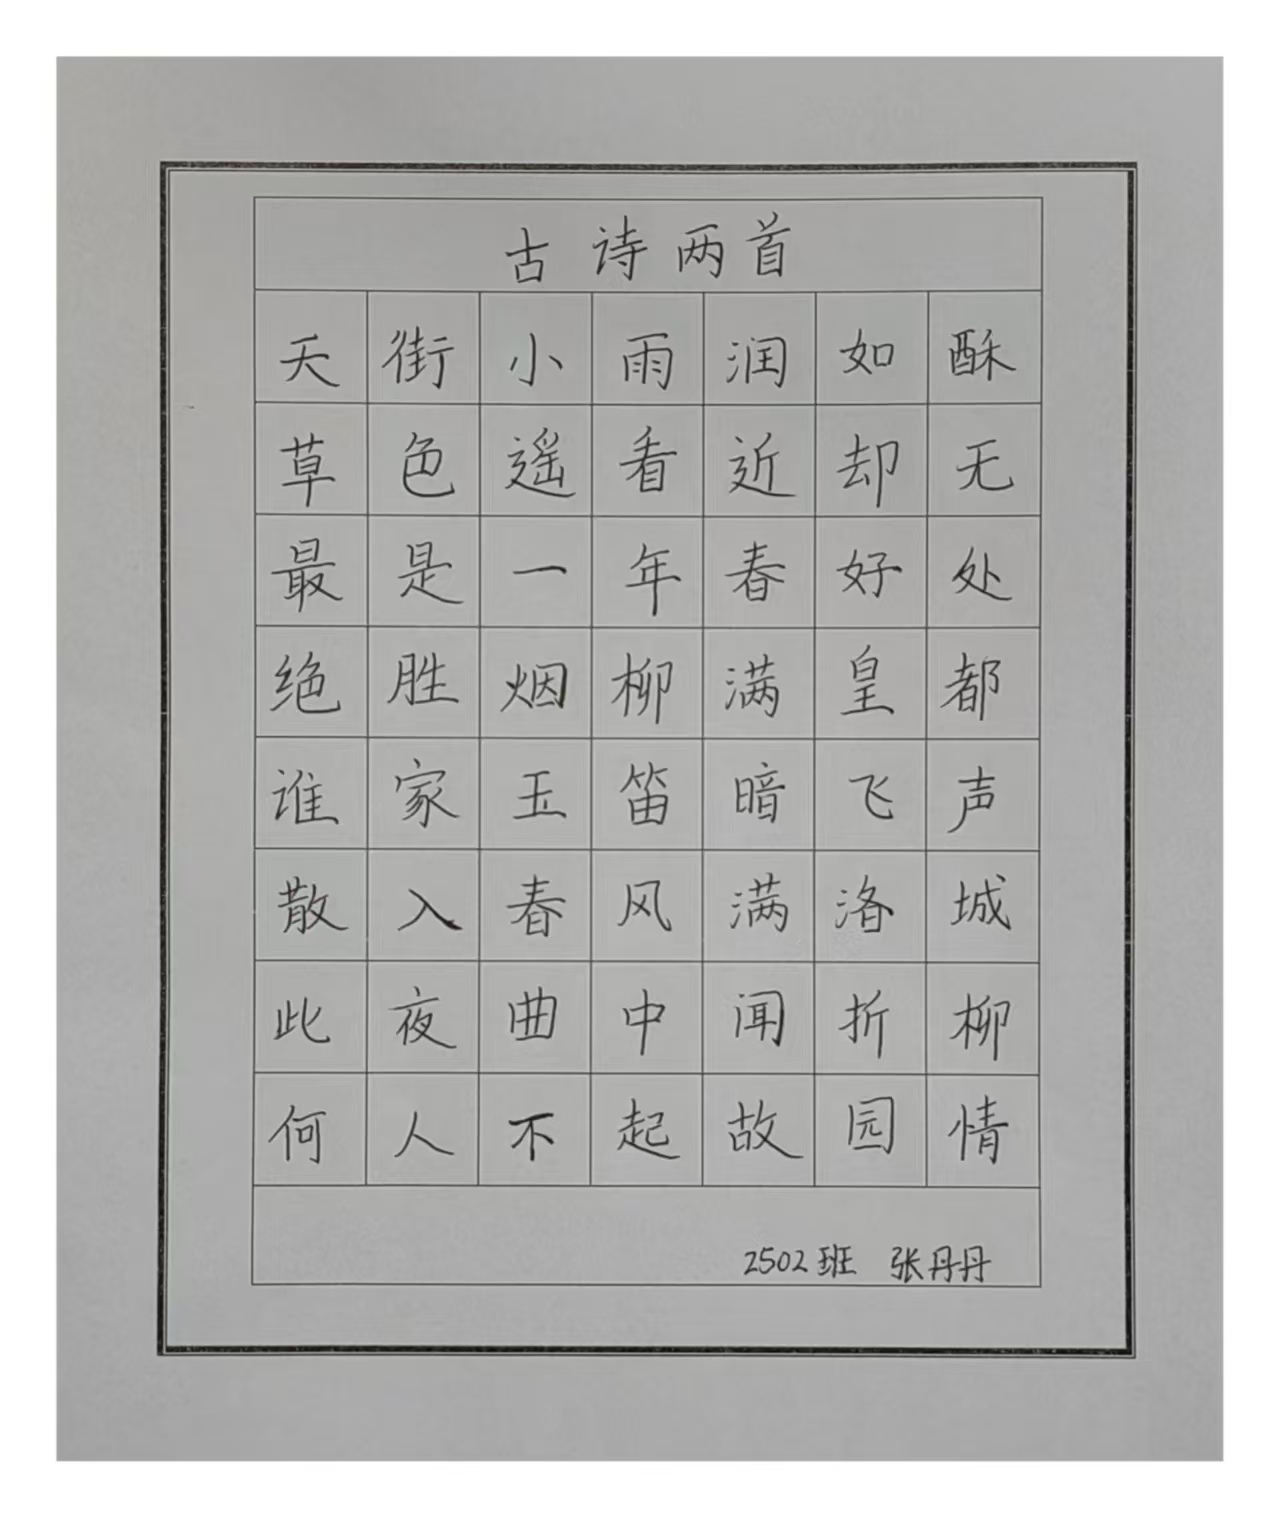 古诗两首
天街小雨润如酥
草色遥看近却无
最是一年春好处
绝胜烟柳满皇都
谁家玉笛暗飞声
散入春风满洛城
此夜曲中闻折柳
何人不起故园情
2502班 张丹丹